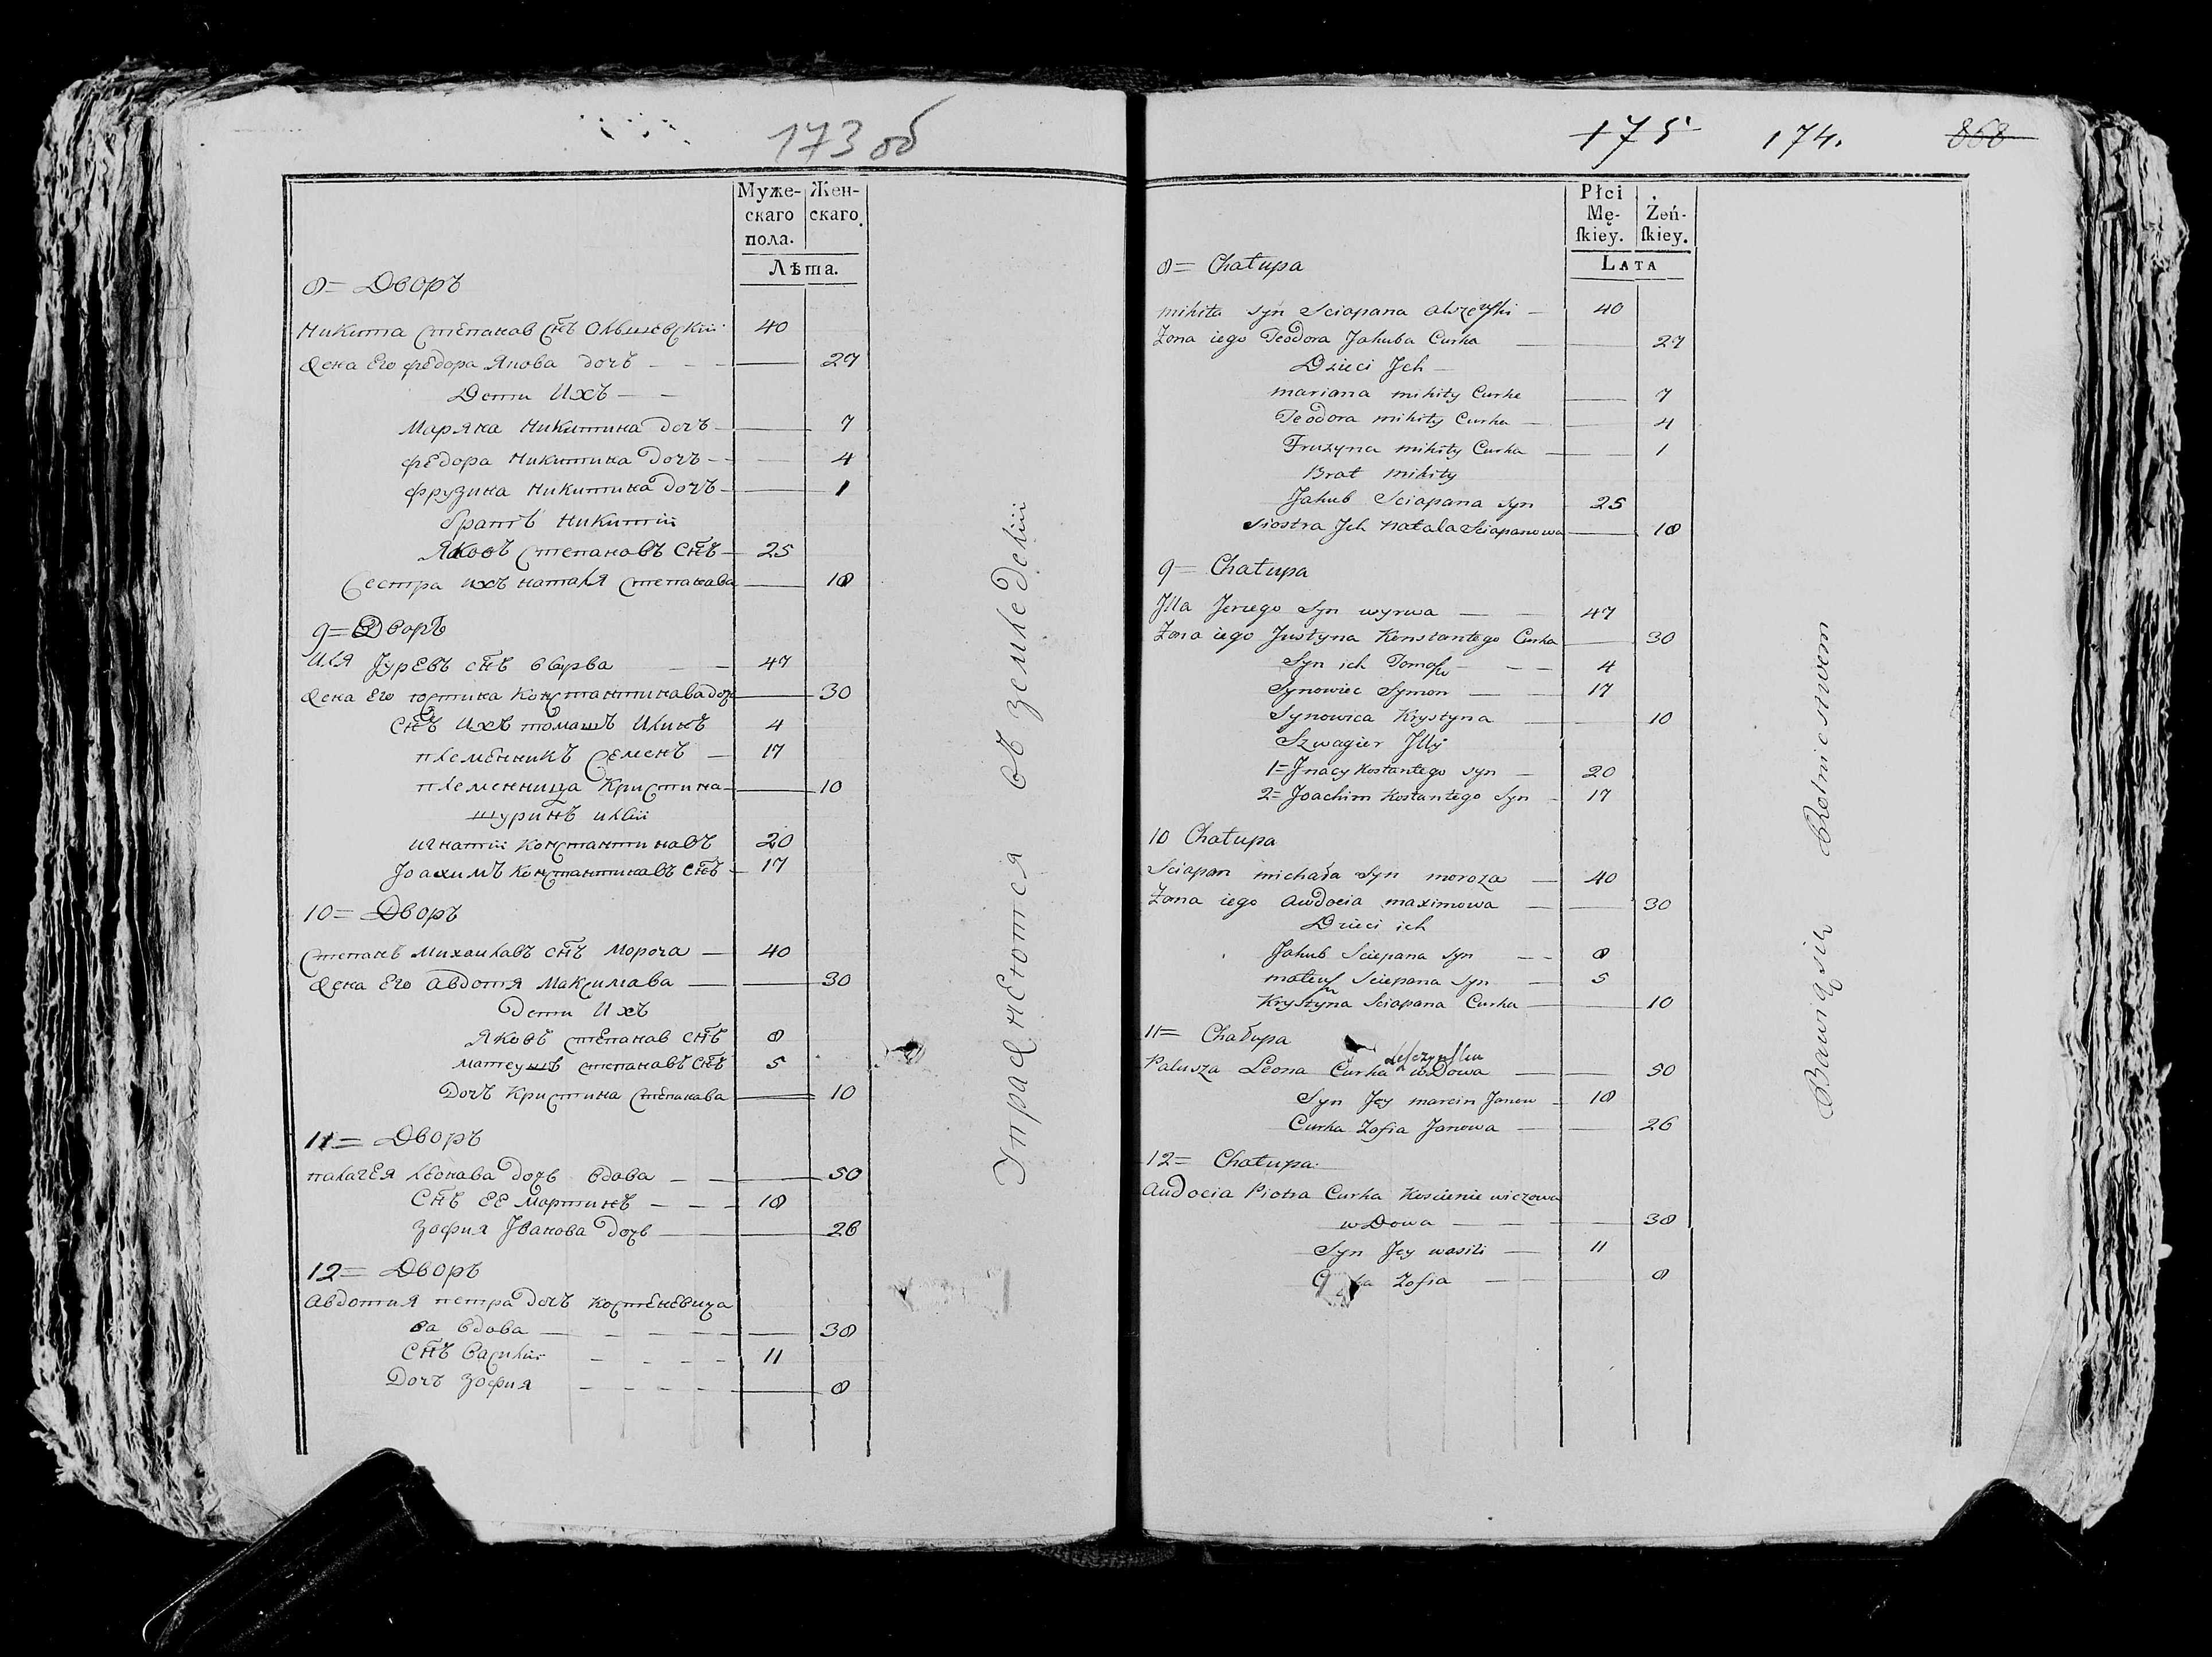 173 об
Муже-
скаго
пола.
Жен-
скаго.
Лѣта.
8 = Дворъ
Никита Степанав снъ Ольшевский 40
Жена Его федора Якова дочъ 27
Дети Ихъ
Маряна Никитина дочъ 7
федора Никитина дочъ 4
фрузина Никитина дочъ 1
братъ Никитій
Яковъ Степанавъ снъ 25
Сестра ихъ наталя Степанава 18
9 = Дворъ
Иля Јуревъ снъ вырва 47
Жена Его юстина Константинава дочъ 30
снъ Ихъ томашъ Илинъ 4
племенникъ Семенъ 17
племенница Кристина 10
шуринъ илій
игнатій Константинавъ 20
Јоахимъ Константинавъ снъ 17
10 = Дворъ
Степанъ Михаилавъ снъ Мороза 40
Жена Его Авдотя Максимава 30
Дети Ихъ
Яковъ степанав снъ 8
матеушъ степанавъ снъ 5
Дочъ Кристина Степанава 10
11 = Дворъ
палагея Леонава дочъ вдава 50
Снъ ЕЕ мартинъ 18
Зофия Јванова дочъ 26
12 = Дворъ
Авдотия петра дочъ костеневича
ва вдава 38
Снъ Василій 11
Дочъ Зофия 8
Упражнеются въ земледелии
175 174. 868
Płci
Mę-
ſkiey.
Żeń-
ſkiey.
LATA
8 = Chałupa
mikita syn Sciapana olszewski 40
Zona iego Teodora Jakuba Curka 27
Dzieci Jch
mariana mikity Curka 7
Teodora mikity Curka 4
Fruzyna mikity Curka 1
Brat mikity
Jakub Sciapana syn 25
siostra Jch natala Sciapanowa 18
9 = Chałupa
Jlla Jerzego Syn wyrwa 47
Zona iego Justyna Konstantego Curka 30
Syn ich Tomasz 4
Synowiec Symon 17
Synowica Krystyna 10
Szwagier Jlly
1 = Jnacy Kostantego syn 20
2 = Joachim Kostantego Syn 17
10 Chałupa
Sciapan michała Syn moroza 40
Zona iego Awdocia maximowa 30
Dzieci ich
Jakub Sciepana syn 8
mateusz Sciepana syn 5
Krystyna Sciapana Curka 10
11 = Chałupa
Palusza Leona Curka wDowa 50
Syn Jey marcin Janow 18
Curka Zofia Janowa 26
12 = Chałupa
Audocia Piotra Curka Koscieniewiczowa
wDowa 38
Syn Jey wasili 11
Zofia 8
Bawią się Rolnictwem